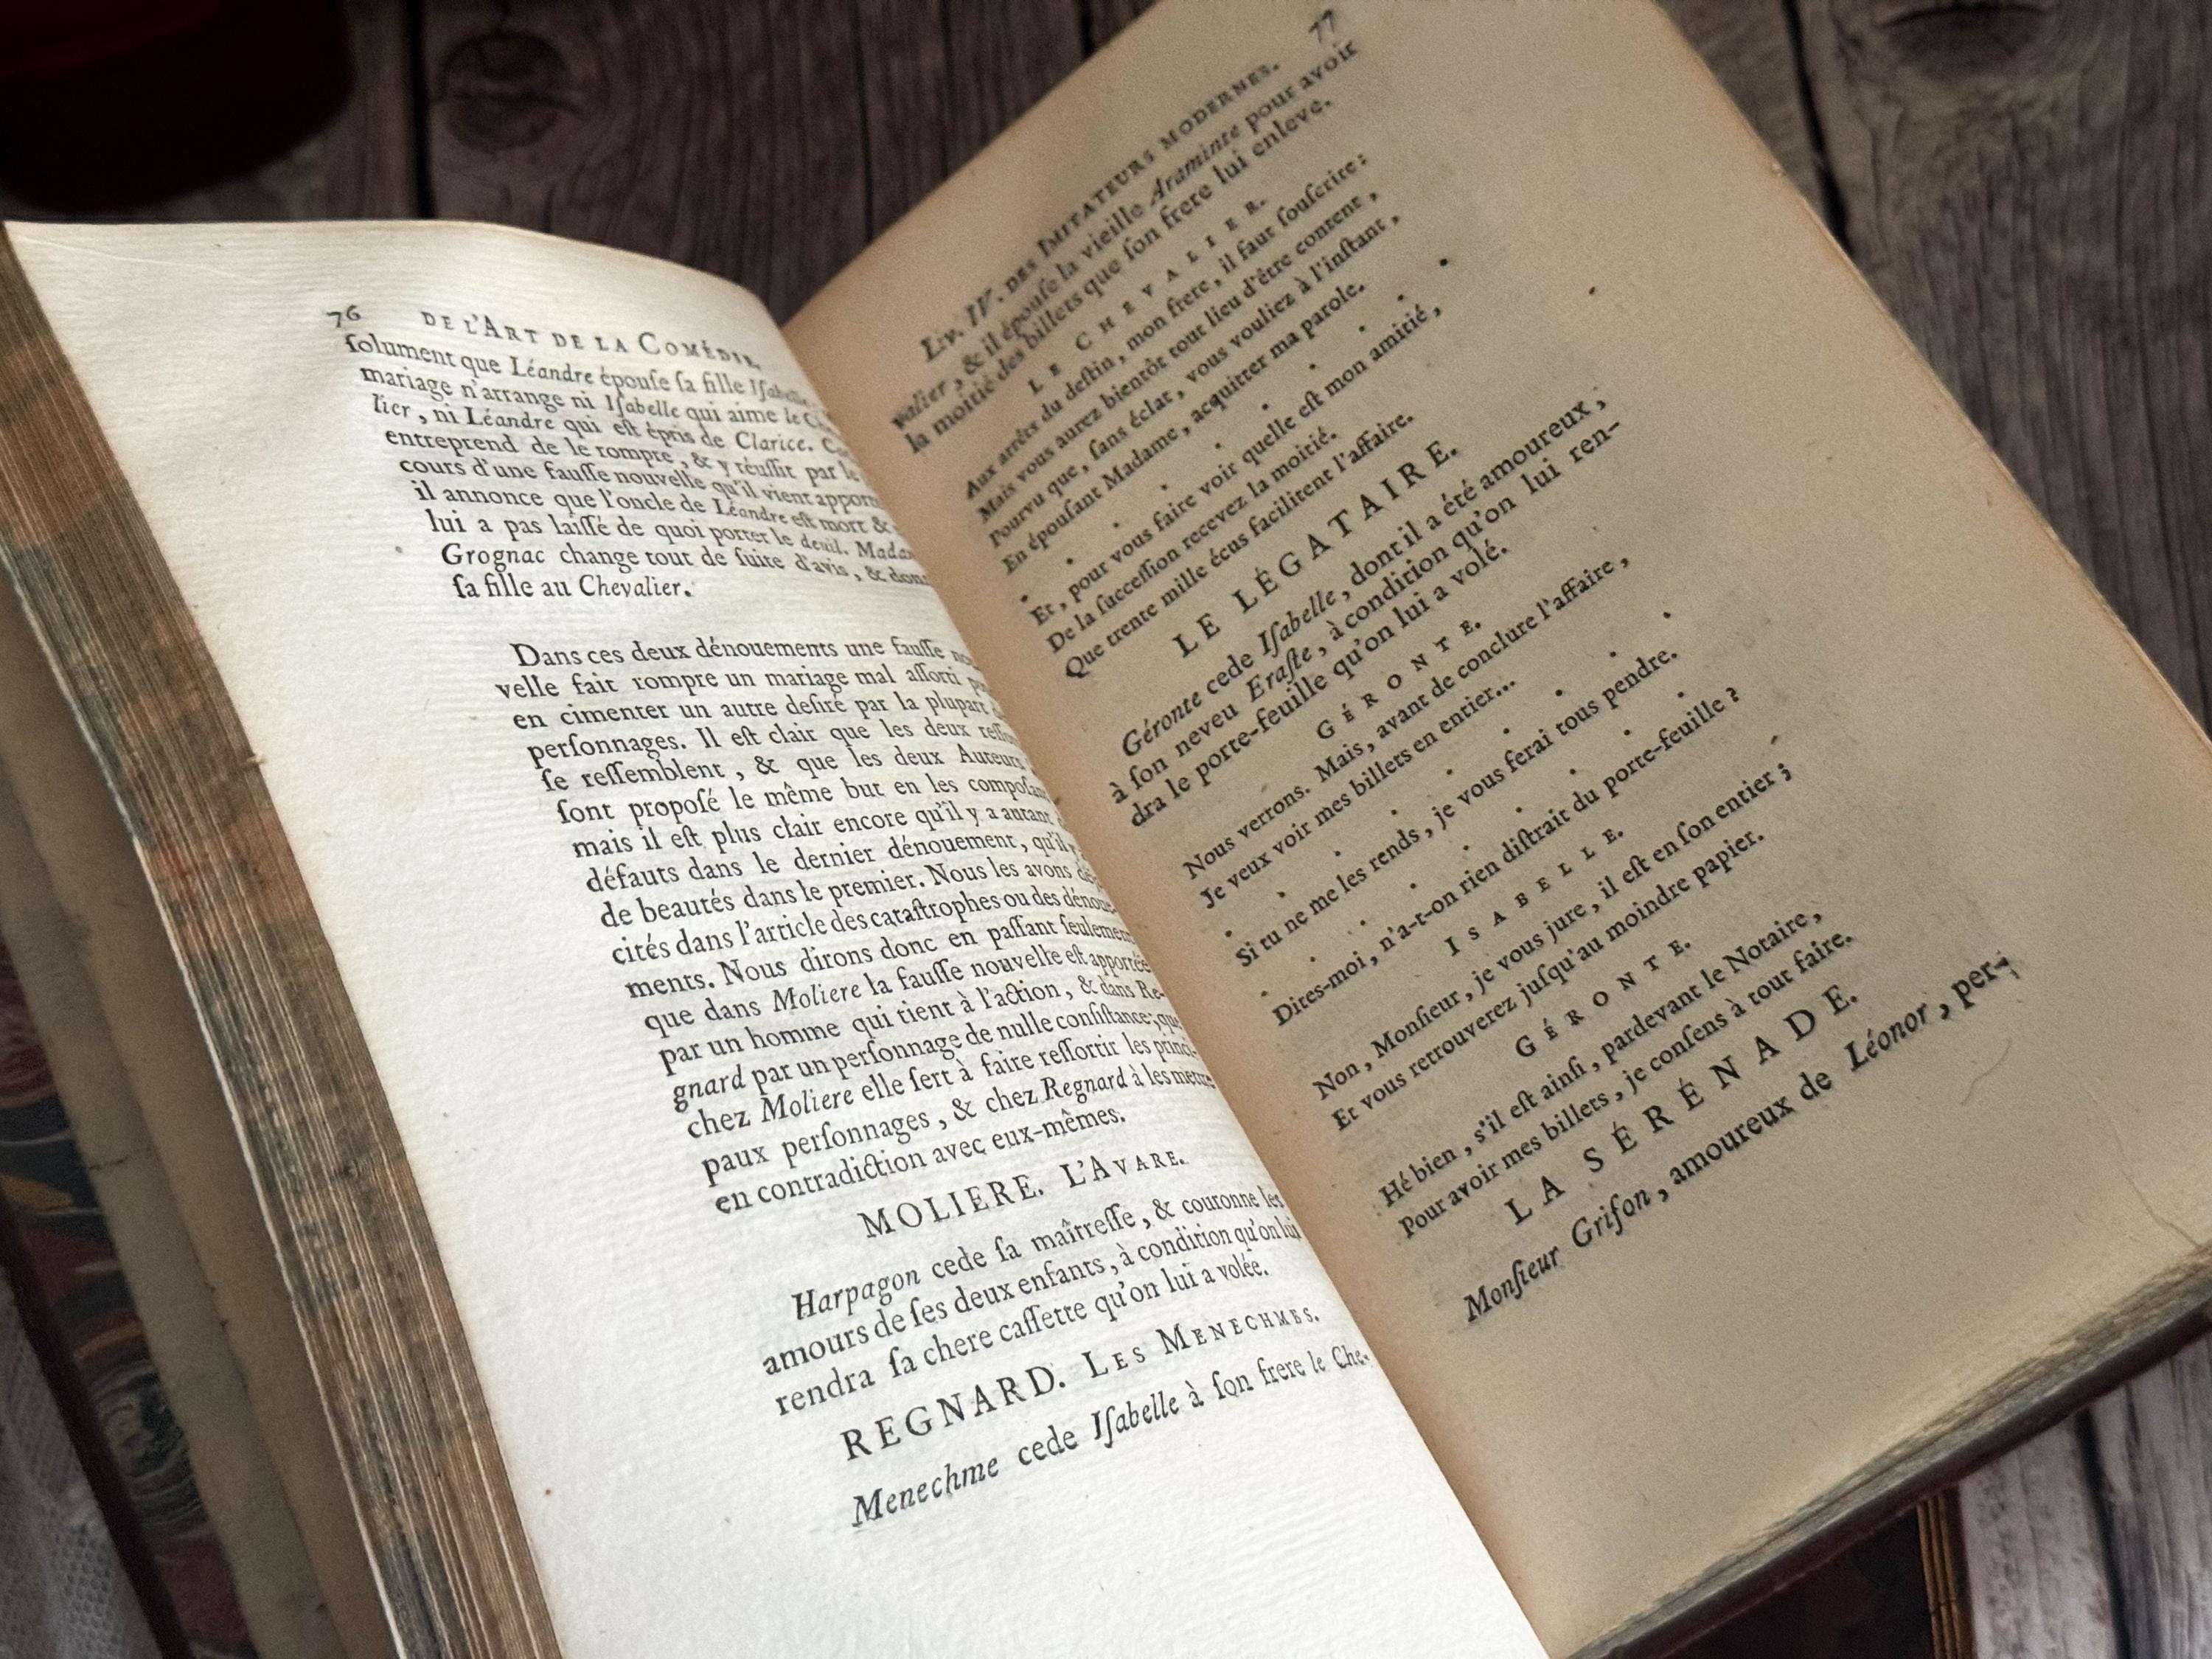 76 DE L'ART DE LA COMÉDIE,
ſolument que Léandre épouſe ſa fille Iſabelle
mariage n'arrange ni Iſabelle qui aime le
lier, ni Léandre qui eſt épris de Clarice.
entreprend de le rompre, & y réuſſit par le
cours d'une fauſſe nouvelle qu'il vient
il annonce que l'oncle de Léandre eſt mort &
lui a pas laiſſé de quoi porter le deuil.
Grognac change tout de ſuite d'avis, &
ſa fille au Chevalier.
Dans ces deux dénouements une fauſſe
velle fait rompre un mariage mal aſſorti
en cimenter un autre deſiré par la plupart
perſonnages. Il eſt clair que les deux
ſe reſſemblent, & que les deux Auteurs
ſont propoſé le même but en les
mais il eſt plus clair encore qu'il y a autant
défauts dans le dernier dénouement, qu'il y
de beautés dans le premier. Nous les avons
cités dans l'article des cataſtrophes ou des
ments. Nous dirons donc en paſſant ſeulement
que dans Moliere la fauſſe nouvelle eſt apportée
par un homme qui tient à l'action, & dans Re-
gnard par un perſonnage de nulle conſiſtance; que
chez Moliere elle ſert à faire reſſortir les princi-
paux perſonnages, & chez Regnard à les mettre
en contradiction avec eux-mêmes.
MOLIERE. L'AVARE.
Harpagon cede ſa maîtreſſe, & couronne les
amours de ſes deux enfants, à condition qu'on lui
rendra ſa chere caſſette qu'on lui a volée.
REGNARD. LES MENECHMES.
Menechme cede Iſabelle à ſon frere le Che-
LIV. IV. DES IMITATEURS MODERNES. 77
valier, & il épouſe la vieille Araminte pour avoir
la moitié des billets que ſon frere lui enleve.
LE CHEVALIER.
Aux arrêts du deſtin, mon frere, il faut ſouſcrire:
Mais vous aurez bientôt tout lieu d'être content,
Pourvu que, ſans éclat, vous vouliez à l'inſtant,
En épouſant Madame, acquitter ma parole.
. . . . . . . . . .
Et, pour vous faire voir quelle eſt mon amitié,
De la ſucceſſion recevez la moitié.
Que trente mille écus facilitent l'affaire.
LE LÉGATAIRE.
Géronte cede Iſabelle, dont il a été amoureux,
à ſon neveu Eraſte, à condition qu'on lui ren-
dra le porte-feuille qu'on lui a volé.
GÉRONTE.
Nous verrons. Mais, avant de conclure l'affaire,
Je veux voir mes billets en entier...
. . . . . . . . .
Si tu ne me les rends, je vous ferai tous pendre.
. . . . . . . . .
Dites-moi, n'a-t-on rien diſtrait du porte-feuille?
ISABELLE.
Non, Monſieur, je vous jure, il eſt en ſon entier;
Et vous retrouverez juſqu'au moindre papier.
GÉRONTE.
Hé bien, s'il eſt ainſi, pardevant le Notaire,
Pour avoir mes billets, je conſens à tout faire.
LA SÉRÉNADE.
Monſieur Grifon, amoureux de Léonor, per-